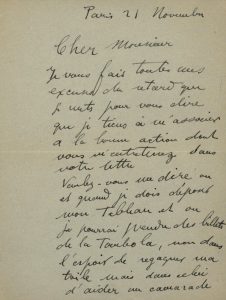 Paris 21 Novembre
Cher Monsieur
Je vous fais toutes mes
excuses du retard que
je mets pour vous dire
que je tiens à m'associer
à la bonne action dont
vous m'entretenez dans
votre lettre
Voulez-vous me dire où
et quand je dois déposer
mon Tableau et où
je pourrai prendre des billets
de la Tombola, non dans
l'espoir de regagner ma
toile mais dans celui
d'aider un camarade